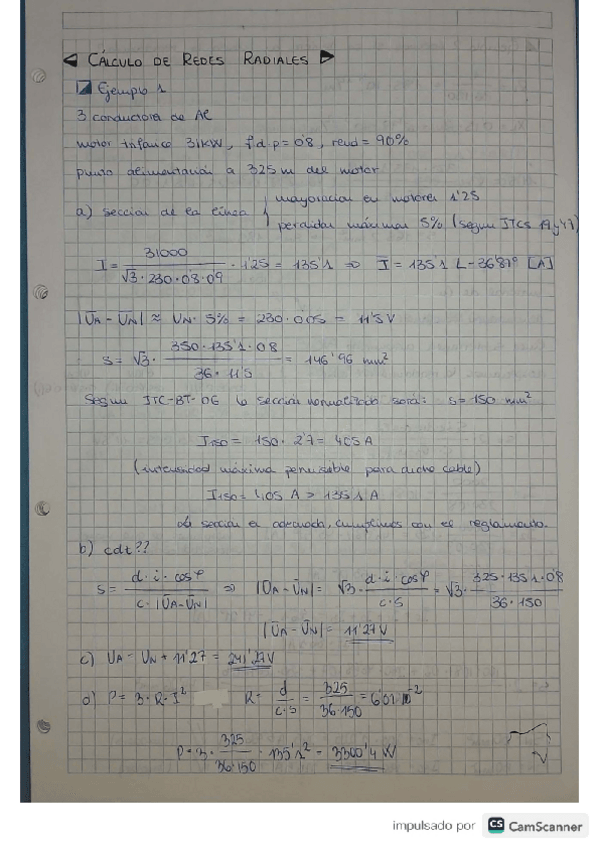 CÁLCULO DE REDES RADIALES
Ejemplo 1
3 conductores de Al
motor trifásico 31KW, f.d.p = 0'8, rend = 90%
punto alimentación a 325 m del motor
a) sección de la línea { mayoración en motores 1'25
perdidas máximas 5% (según ITCs 19 y 47)
I = 31000 / √3 · 230 · 0'8 · 0'9 · 1'25 = 135'1 ⇒ I = 135'1 ∟-36'87º [A]
|ŪA - ŪN| ≈ UN · 5% = 230 · 0'05 = 11'5 V
s = √3 · 350 · 135'1 · 0'8 / 36 · 11'5 = 146'96 mm²
Según ITC-BT-06 la sección normalizada será: s = 150 mm²
I150 = 150 · 2'7 = 405 A
(intensidad máxima permisible para dicho cable)
I150 = 405 A > 135'1 A
La sección es adecuada, cumplimos con el reglamento.
b) cdt??
s = d · i · cosφ / c · |ŪA - ŪN| ⇒ |ŪA - ŪN| = √3 · d · i · cosφ / c · s = √3 · 325 · 135'1 · 0'8 / 36 · 150
|ŪA - ŪN| = 11'27 V
c) UA = UN + 11'27 = 241'27 V
d) P = 3 · R · I² R = d / c · s = 325 / 36 · 150 = 6'01 · 10⁻²
P = 3 · 325 / 36 · 150 · 135'1² = 3300'4 W
impulsado por CS CamScanner